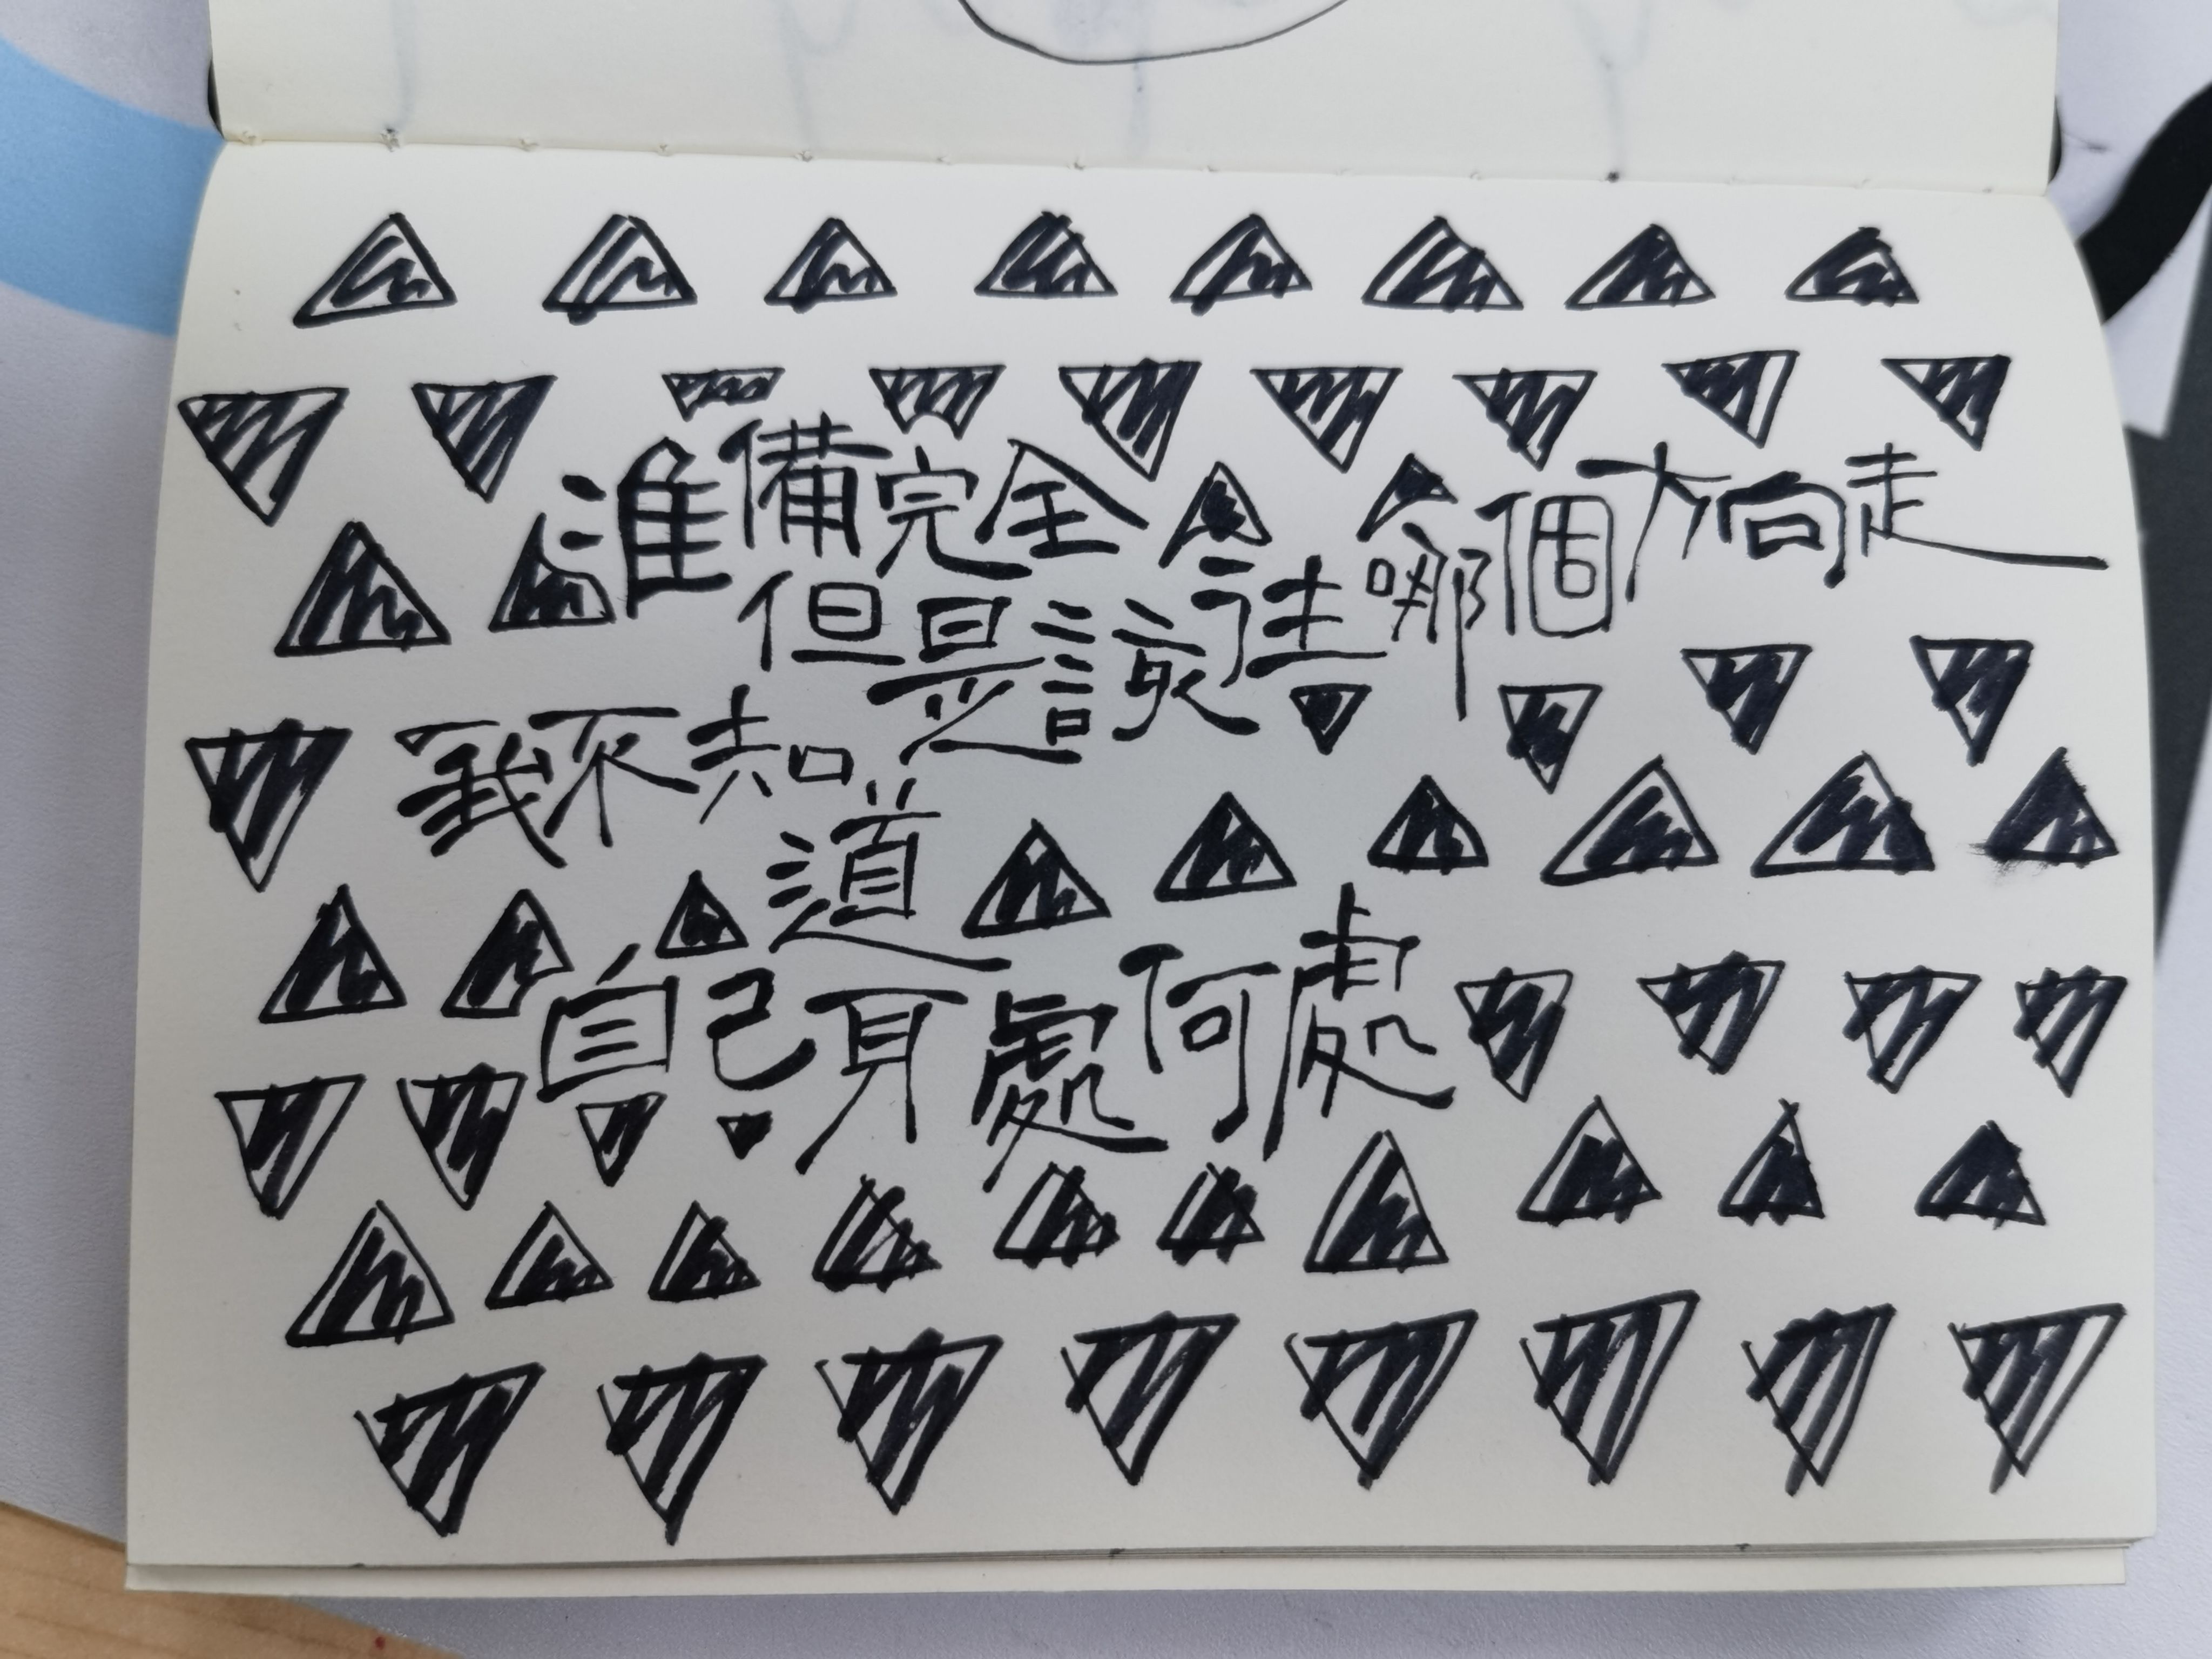 準備完全
但是該往哪個方向走
我不知道
自己身處何處